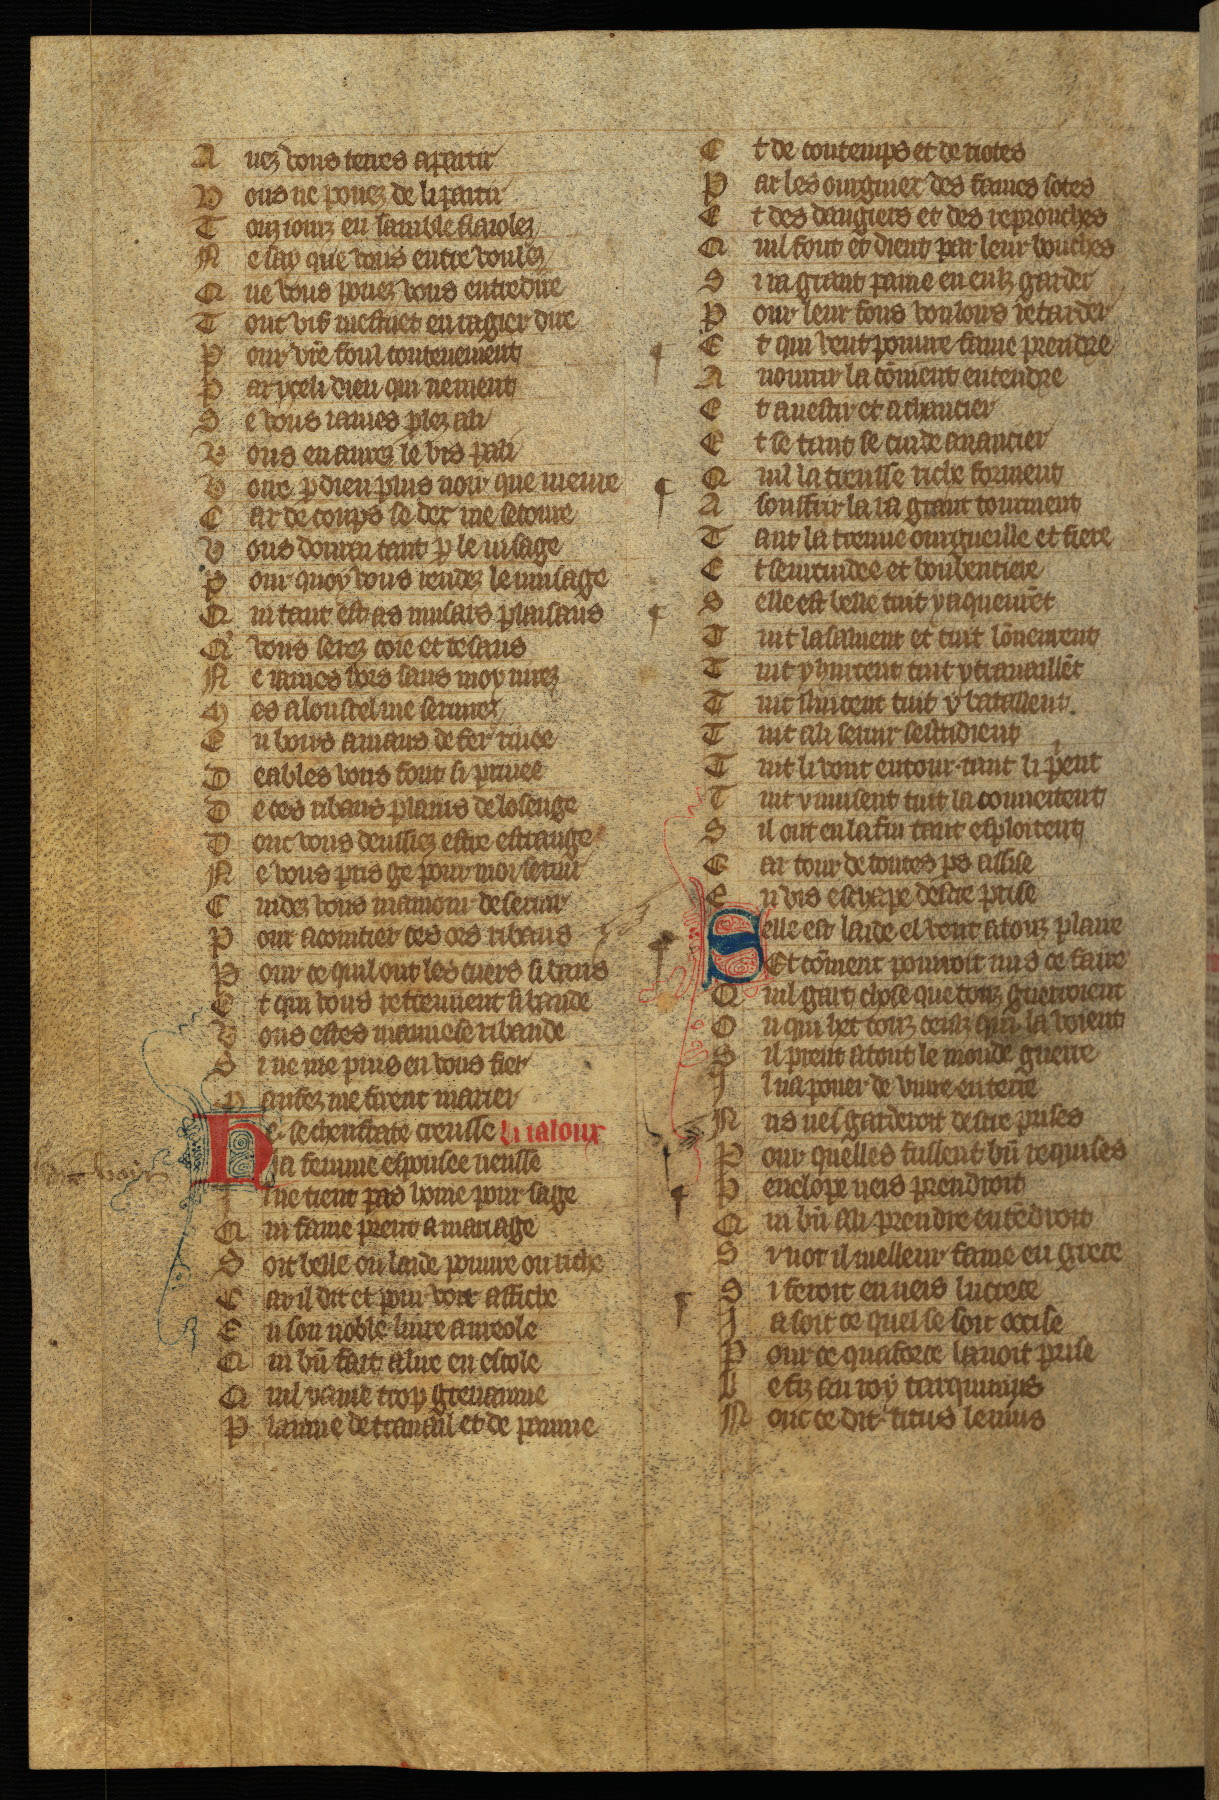 A uez vous terres a partir
V ous ne pouez de li partir
T ouz iourz en lamble flaiolez
N e say que vous entre voulez
Q ue vous pouez vous entredire
T out vif mestuet enragier dire
P our vr̄e foul contenement
P ar yceli dieu qui ne ment
S e vous iames plez a li
V ous en aurez le vis pali
V oire p dieu plus noir que meure
C ar de coups se dex me sequeure
V ous donrai tant p le uisage
P our quoy vous rendez le musage
Q ui tant est as musars plaisans
Q̄ vous serez coie et taisans
N e iames hors sans moy nirez
M es a loustel me seruirez
E n boins aniaus de fer riuee
D eables vous font si priuee
D e ces ribaus plains de losenge
D ont vous deussiez estre estrange
N e vous pris ge pour moi seruir
C uidez vous mamour deseruir
P our acointier ces ors ribaus
P our ce quil ont les cuers si baus
E t qui vous retiennent si baude
V ous estes mauuese ribaude
S i ne me puis en vous fier
M aufez me firent marier
He se theufraste creusse Li ialoux
Ja femme espousee neusse
I l ne tient pas home pour sage
Q ui fame prent a mariage
S oit belle ou laide poure ou riche
C ar il dit et pour voir affiche
E n son noble liure aureole
Q ui bn̄ fait a lire en escole
Q uil y a uie trop greuainne
P lainne de trauail et de painne
E t de contemps et de riotes
P ar les ourguiex des fames sotes
E t des dangiers et des reprouches
Q uil font et dient par leur bouches
S i ra grant paine en eulz garder
P our leur fous vouloirs retarder
E t qui veut poure fame prendre
A nourrir la cōment entendre
E t a uestir et a chaucier
E t se tant se cuide auancier
Q uil la preisse riche forment
A souffrir la ra grant tourment
T ant la treuue ourgueille et fiere
E t seurcuidee et bonbenciere
S elle est belle tuit y aqueurēt
T uit lasaillent et tuit lōneurent
T uit y hurtent tuit y trauaillēt
T uit luitent tuit y bataillent.
T uit a li seruir sestudient
T uit li vont entour tant li pient
T uit y musent tuit la conuoitent
S il ont en la fin tant esploitent
C ar tour de toutes ps assise
E n vis eschape destre prise
Selle est laide el veut a touz plaire
Et cōment pourroit nus ce faire
Q uil gart chose que touz guerroient
O u qui vet touz ceulz qui la voient
S il prent a tout le monde guerre
I l na pouer de viure en terre
N us nel garderoit destre prises
P our quelles fussent bn̄ requises
P enelope neis prendroit
Q ui bn̄ a li prendre entēdroit
S i not il melleur fame en grece
S i feroit en neis lucrece
J a soit ce quel se soit occise
P our ce qua force lauoit prise
L e fiz au roy tarquinius
N onc ce dit titus leuius